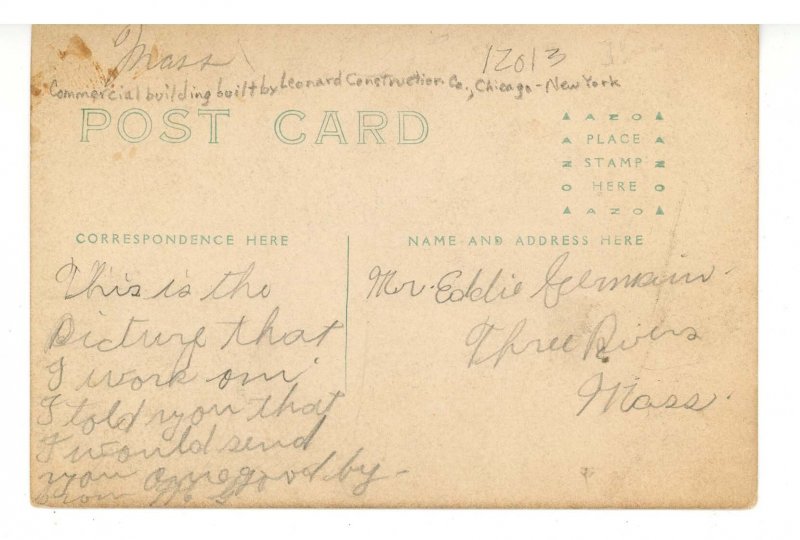 Mass
12013
Commercial building built by Leonard Construction Co., Chicago - New York
POST CARD
AZO
PLACE
STAMP
HERE
AZO
CORRESPONDENCE HERE
NAME AND ADDRESS HERE
This is the
Picture that
I work om
I told you that
I would send
you one good by -
from
Mr. Eddie Germain
Three Rivers
Mass.